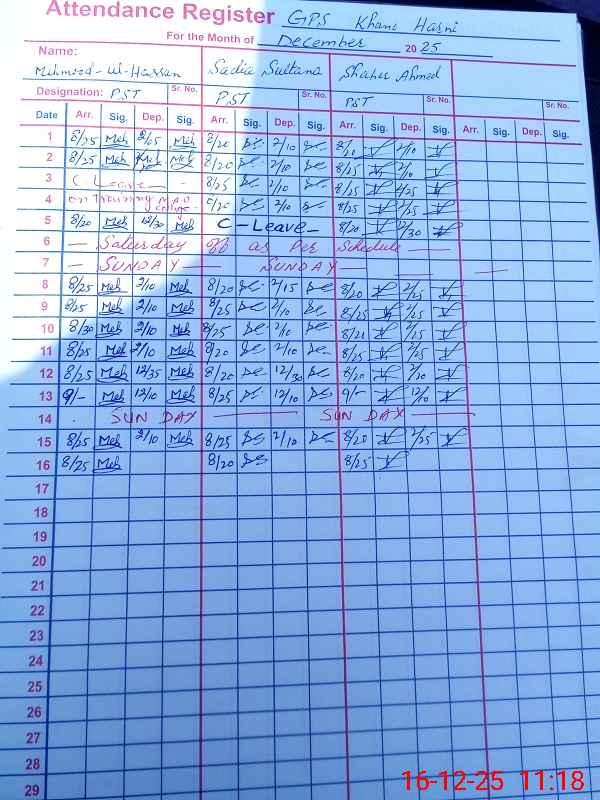 Attendance Register GPS Khano Harni
For the Month of December 2025
Name:
Mehmood-Ul-Hassan Sadia Sultana Shaher Ahmed
Designation: PST Sr. No. PST Sr. No. PST Sr. No. Sr. No.
Date Arr. Sig. Dep. Sig. Arr. Sig. Dep. Sig. Arr. Sig. Dep. Sig. Arr. Sig. Dep. Sig.
1 8/25 Meh Meh 8/20 2/10 2/10
2 8/25 Meh Meh 8/20 2/10 8/25 2/10
3 C Leave - 8/25 2/10 8/25 2/25
4 on Training 2/10 8/25 2/25
5 8/20 Meh 12/30 Meh C-Leave- 8/20 12/30
6 - Saturday off as Per Schedule -
7 - SUNDAY - SUNDAY -
8 8/25 Meh 2/10 Meh 8/20 2/15 8/20 2/25
9 8/25 Meh 2/10 Meh 8/25 2/10 8/25 2/25
10 8/30 Meh 2/10 Meh 8/25 2/10 8/21 2/25
11 8/25 Meh 2/10 Meh 8/20 2/10 8/25 2/25
12 8/25 Meh 12/35 Meh 8/20 12/30 8/20
13 9/- Meh 12/10 Meh 8/25 12/10 9/- 12/10
14 SUNDAY SUNDAY
15 8/25 Meh 2/10 Meh 8/25 2/10 8/20 2/25
16 8/25 Meh 8/20 8/25
17
18
19
20
21
22
23
24
25
26
27
28
29
16-12-25 11:18